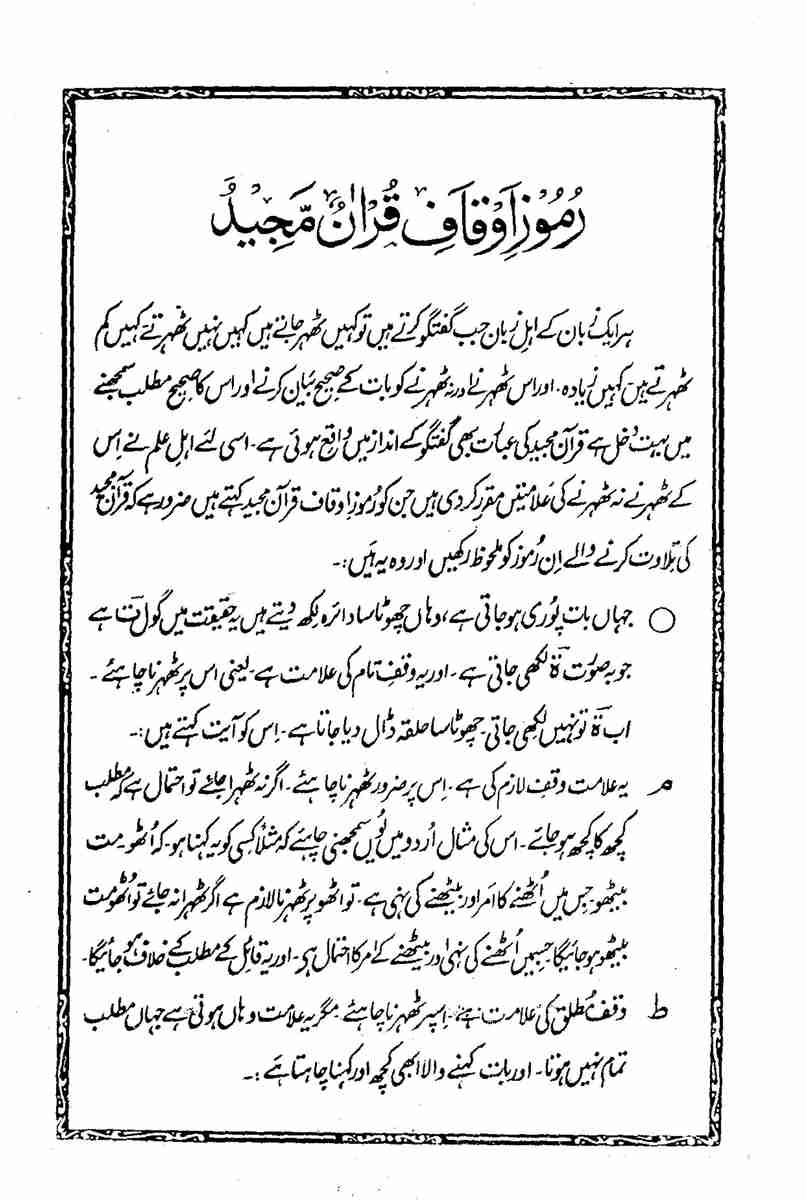 رُمُوْزِ اَوْقَافِ قُرْاٰنْ مَّجِیْدْ
ہر ایک زبان کے اہلِ زبان جب گفتگو کرتے ہیں تو کہیں ٹھہر جاتے ہیں کہیں نہیں ٹھہرتے کہیں کم
ٹھہرتے ہیں کہیں زیادہ۔ اور اس ٹھہرنے اور نہ ٹھہرنے کو بات کے صحیح بیان کرنے اور اس کا صحیح مطلب سمجھنے
میں بہت دخل ہے قرآن مجید کی عبارت بھی گفتگو کے انداز میں واقع ہوئی ہے۔ اسی لئے اہلِ علم نے اِس
کے ٹھہرنے نہ ٹھہرنے کی عَلامتیں مقرر کر دی ہیں جن کو رُموزِ اوقاف قرآن مجید کہتے ہیں ضرور ہے کہ قرآن مجید
کی تلاوت کرنے والے اِن رُموز کو ملحوظ رکھیں اور وہ یہ ہَیں:۔
○ جہاں بات پُوری ہو جاتی ہے، وہاں چھوٹا سا دائرہ لکھ دیتے ہیں یہ حقیقت میں گول ت ہے
جو بہ صُورت ۃ لکھی جاتی ہے۔ اور یہ وقفِ تام کی علامت ہے۔ یعنی اس پر ٹھہرنا چاہئے۔
اب ۃ تو نہیں لکھی جاتی۔ چھوٹا سا حلقہ ڈال دیا جاتا ہے۔ اِس کو آیت کہتے ہیں:۔
م یہ علامت وقفِ لازم کی ہے۔ اِس پر ضرور ٹھہرنا چاہئے۔ اگر نہ ٹھہرا جائے تو احتمال ہے کہ مطلب
کچھ کا کچھ ہو جائے۔ اس کی مثال اُردو میں یُوں سمجھنی چاہئے کہ مثلاً کسی کو یہ کہنا ہو۔ کہ اُٹھو۔ مت
بیٹھو۔ جس میں اُٹھنے کا امر اور بیٹھنے کی نہی ہے۔ تو اٹھو پر ٹھہرنا لازم ہے اگر ٹھہرا نہ جائے تو اُٹھو مت
بیٹھو ہو جائیگا۔ جسمیں اُٹھنے کی نہی اور بیٹھنے کے امر کا احتمال ہی۔ اور یہ قائل کے مطلب کے خلاف ہو جائیگا۔
ط وقفِ مُطلق کی علامت ہے۔ اِسپر ٹھہرنا چاہئے۔ مگر یہ علامت وہاں ہوتی ہے جہاں مطلب
تمام نہیں ہوتا۔ اور بات کہنے والا ابھی کچھ اور کہنا چاہتا ہَے:۔